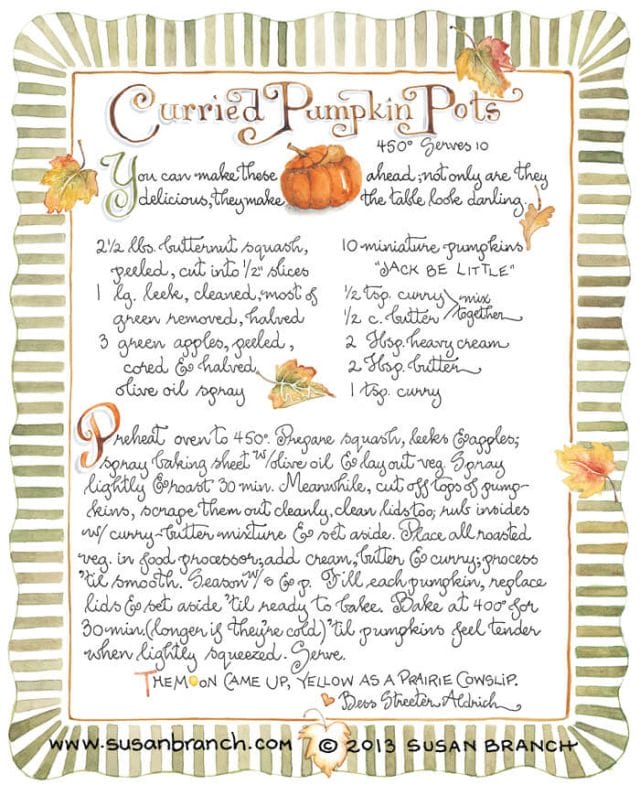 Curried Pumpkin Pots
450° Serves 10
You can make these ahead; not only are they
delicious, they make the table look darling.
2½ lbs. butternut squash,
peeled, cut into ½" slices
1 lg. leek, cleaned, most of
green removed, halved
3 green apples, peeled,
cored & halved
olive oil spray
10 miniature pumpkins
"JACK BE LITTLE"
½ tsp. curry
½ c. butter
mix
together
2 Tbsp. heavy cream
2 Tbsp. butter
1 tsp. curry
Preheat oven to 450°. Prepare squash, leeks & apples;
spray baking sheet w/olive oil & lay out veg. Spray
lightly & roast 30 min. Meanwhile, cut off tops of pump-
kins, scrape them out cleanly, clean lids too; rub insides
w/ curry-butter mixture & set aside. Place all roasted
veg. in food processor; add cream, butter & curry; process
'til smooth. Season w/ s & p. Fill each pumpkin, replace
lids & set aside 'til ready to bake. Bake at 400° for
30 min. (longer if they're cold) 'til pumpkins feel tender
when lightly squeezed. Serve.
THE MOON CAME UP, YELLOW AS A PRAIRIE COWSLIP.
Bess Streeter Aldrich
www.susanbranch.com © 2013 SUSAN BRANCH